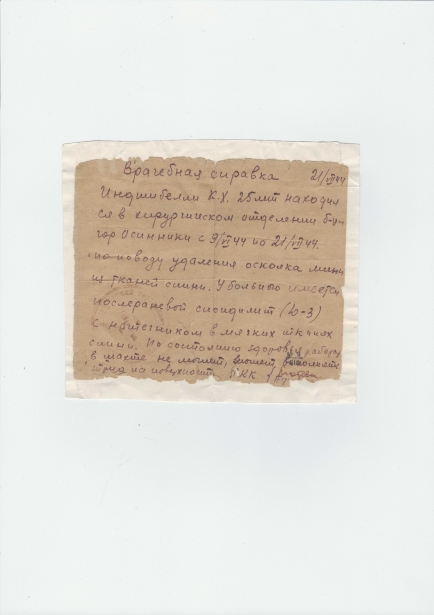 Врачебная справка 21/VI 44
Индшибелли К.Х. 25 лет находил
ся в хирургииском отделении б-цы
гор Осинники с 9/VI 44 по 21/VI 44.
по поводу удаления осколка мины
из тканей спины. У больного имеется
послераневой спондилит (L-3)
с натечником в мягких тканях
спины. По состоянию здоровья работать
в шахте не может, может выполнять
труд на поверхности ВКК